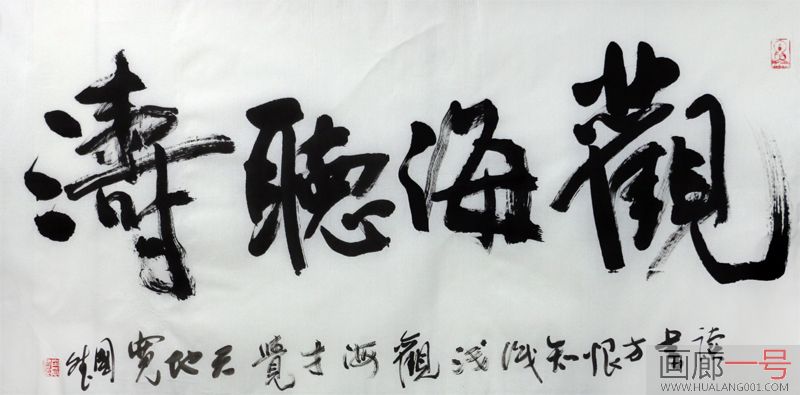 觀海聽濤
讀書方恨知識淺觀海才覺天地寬國
画廊一号
WWW.HUALANG001.COM